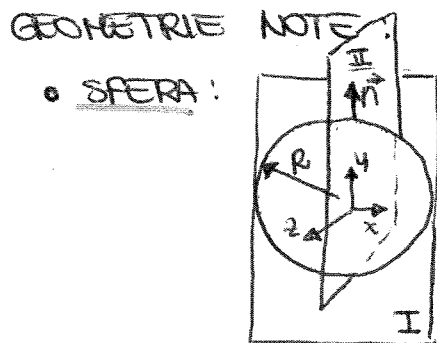 GEOMETRIE NOTE:
• SFERA:
II
n
R
y
z
x
I